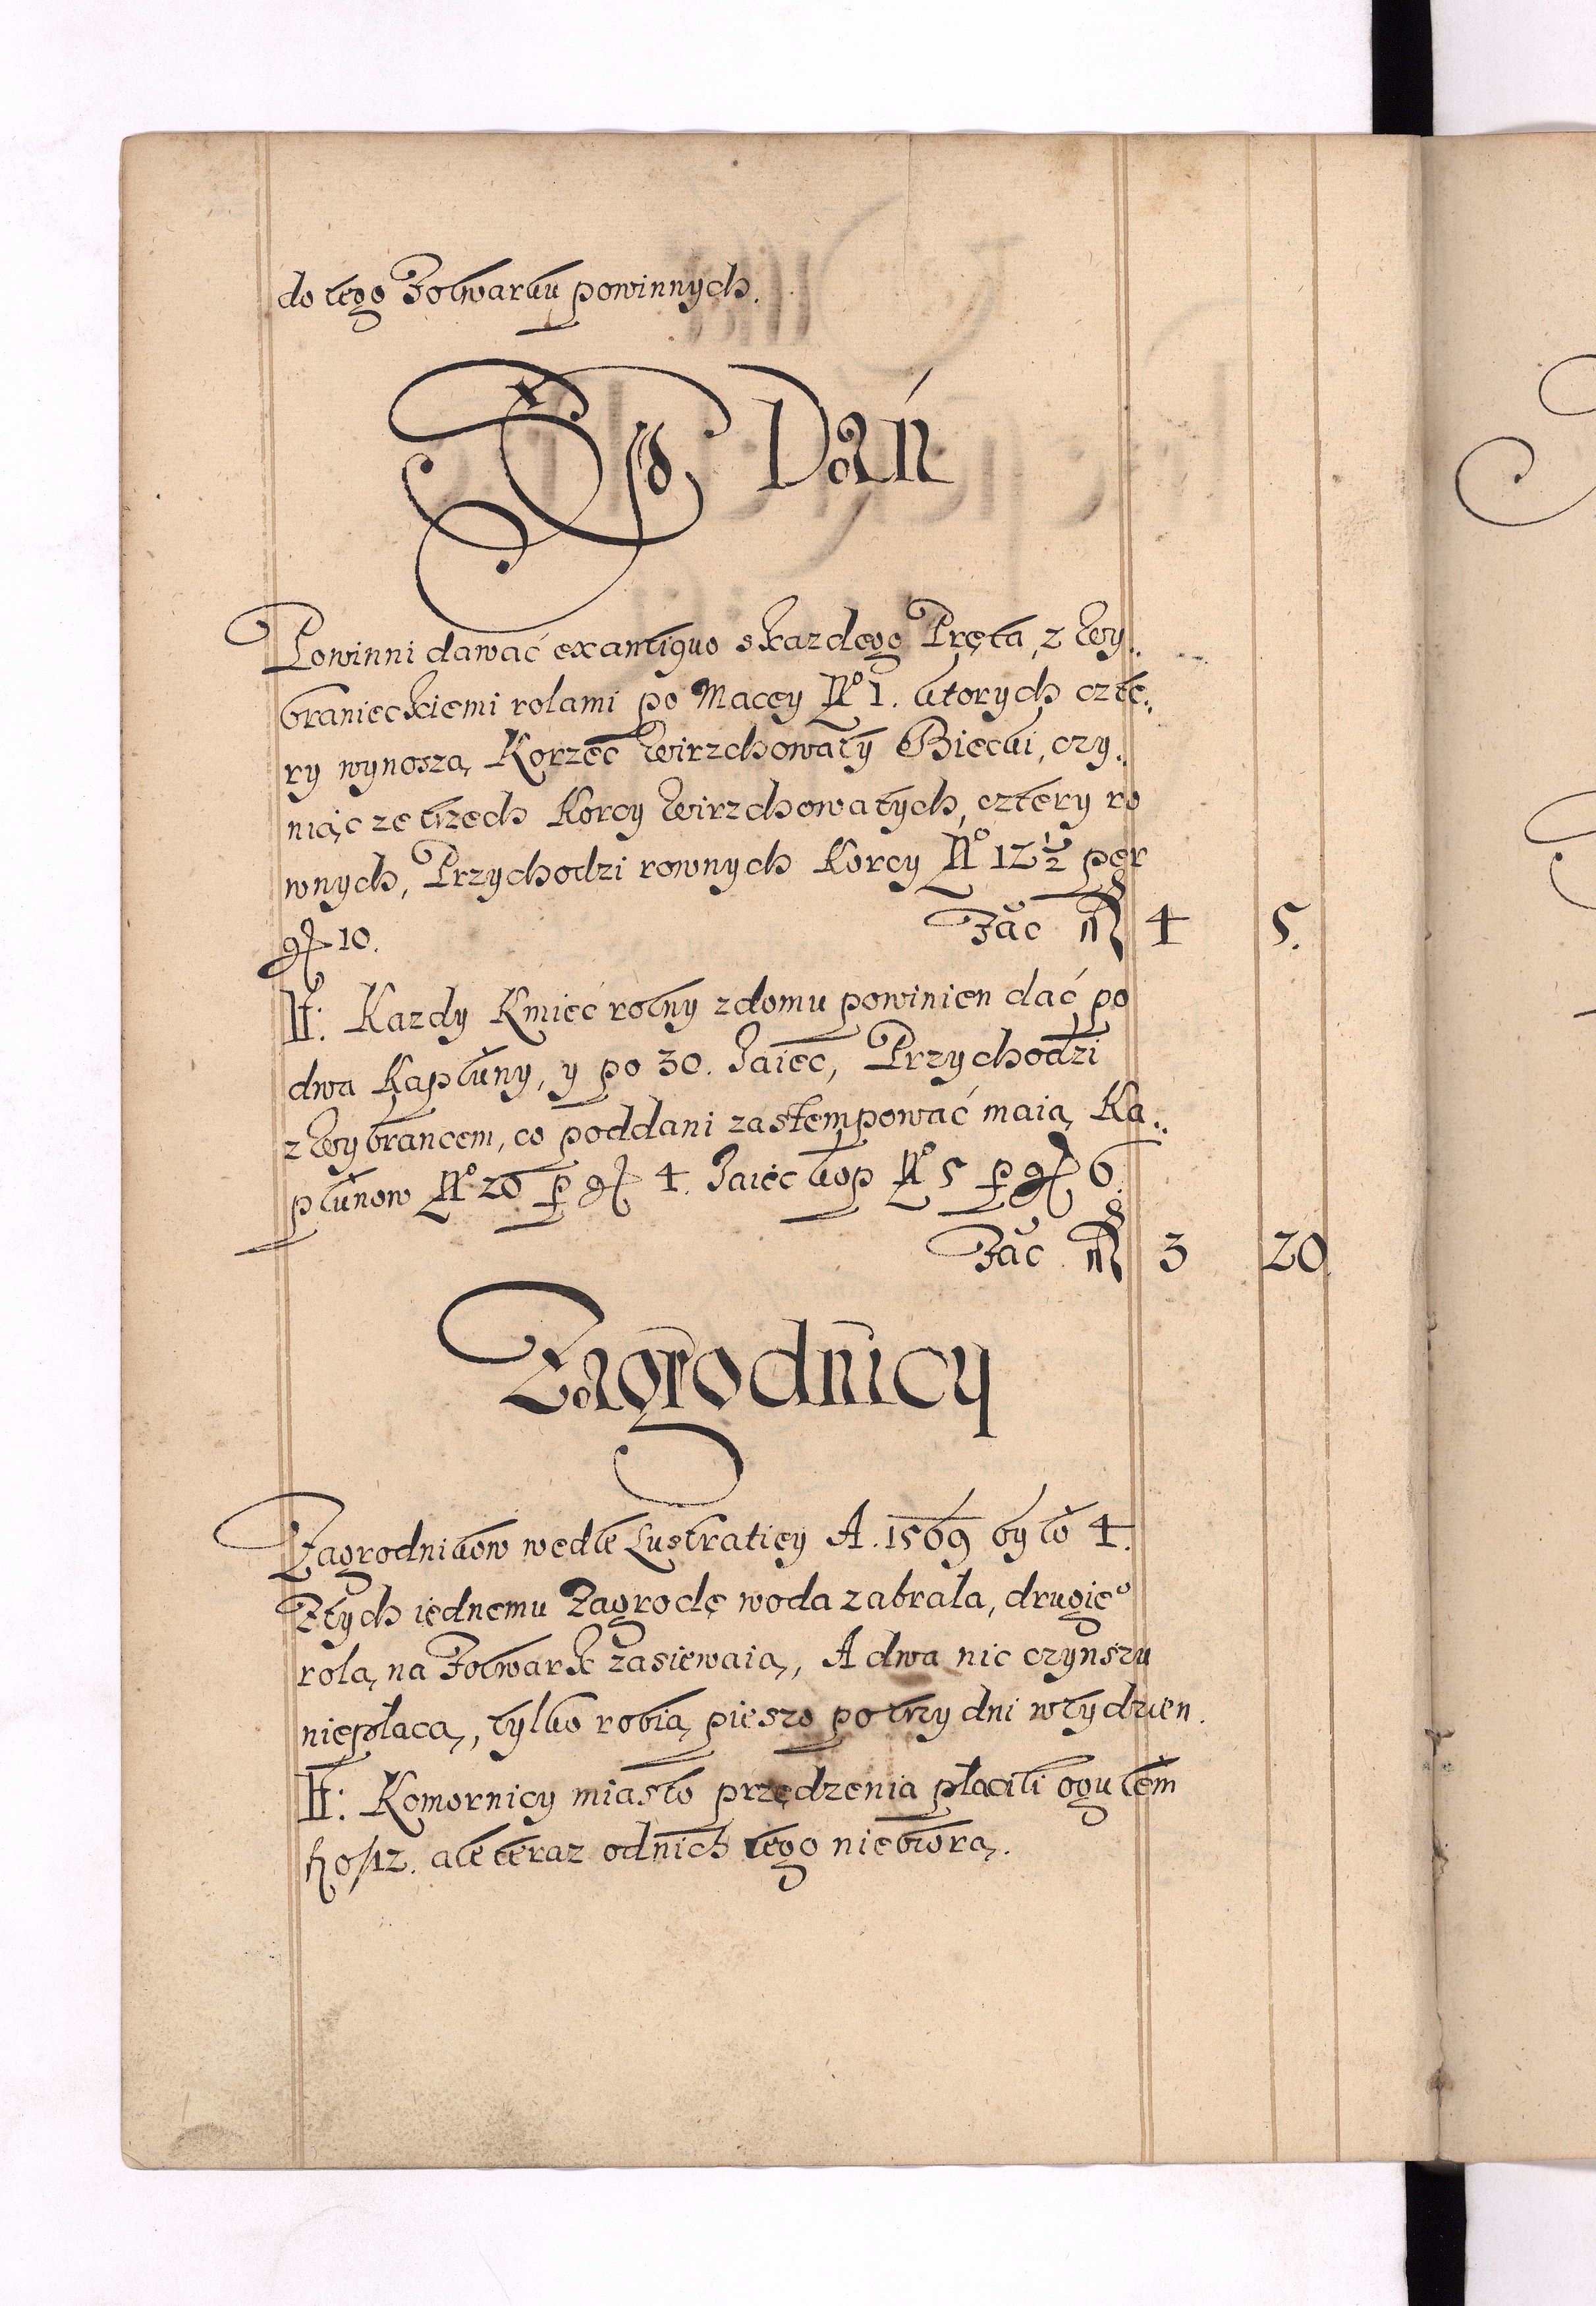 do tego Folwarku powinnych.
Dań
Powinni dawać ex antiquo s kazdego Pręta, z Wy..
branieckiemi rolami po Macey No 1. ktorych czte..
ry wynoszą Korzec Wirzchowaty Biecki, czy..
niąc ze trzech Korcy Wirzchowatych, cztery ro
wnych, Przychodzi rownych Korcy No 12 1/2 per
gr 10. Fac fl 4 5.
It: Kazdy Kmieć rolny z domu powinien dać po
dwa Kapłuny, y po 30. Jaiec, Przychodzi
z Wybrancem, co poddani zastempować maią Ka..
płunow No 20 p gr 4. Jaiec kop No 5 p gr 6.
Fac fl 3 20
Zagrodnicy
Zagrodnikow wedle Lustratiey A. 1569 było 4.
Z tych iednemu Zagrodę woda zabrała, drugieo
rolą na Folwark zasiewaią, A dwa nic czynszu
niepłacą, tylko robią pieszo po trzy dni w tydzien.
It: Komornicy miasto przędzenia płacili ogułem
fl 0/12. ale teraz od nich tego niebiorą.